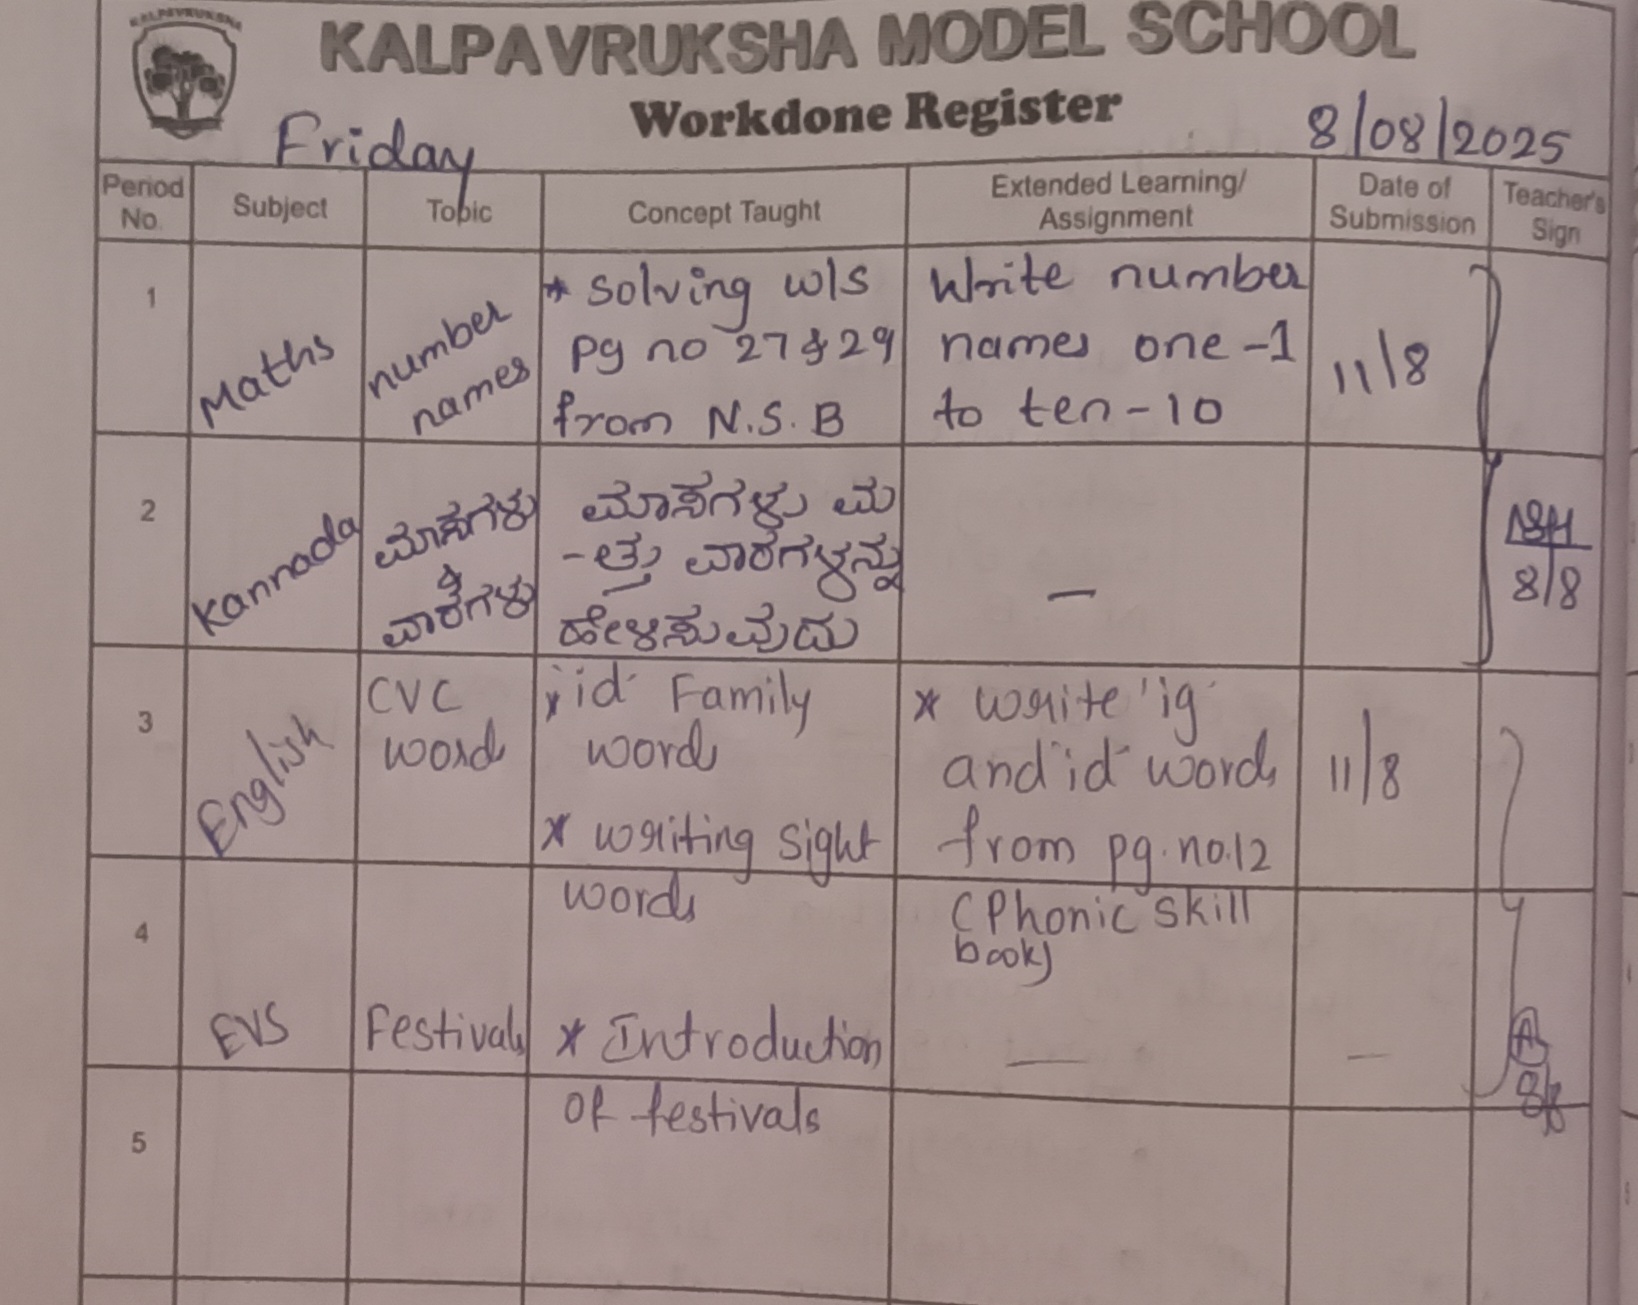 KALPAVRUKSHA
KALPAVRUKSHA MODEL SCHOOL
Workdone Register
Friday
8/08/2025
Period No.
Subject
Topic
Concept Taught
Extended Learning/
Assignment
Date of
Submission
Teacher's
Sign
1
Maths
number
names
* solving w/s
pg no 27 & 29
from N.S.B
Write number
names one-1
to ten-10
11/8
2
Kannada
ಮಾಸಗಳು
&
ವಾರಗಳು
ಮಾಸಗಳು ಮ
-ತ್ತು ವಾರಗಳನ್ನು
ಹೇಳಿಸುವುದು
—
8/8
3
English
CVC
words
* 'id' Family
words
* writing sight
words
* write 'ig'
and 'id' words
from pg.no.12
(Phonic skill
book)
11/8
4
EVS
Festivals
* Introduction
of festivals
—
—
8/8
5